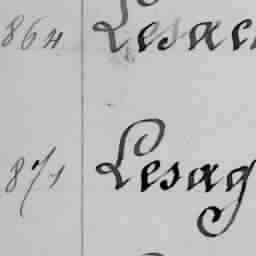 864 Lesac
871 Lesag